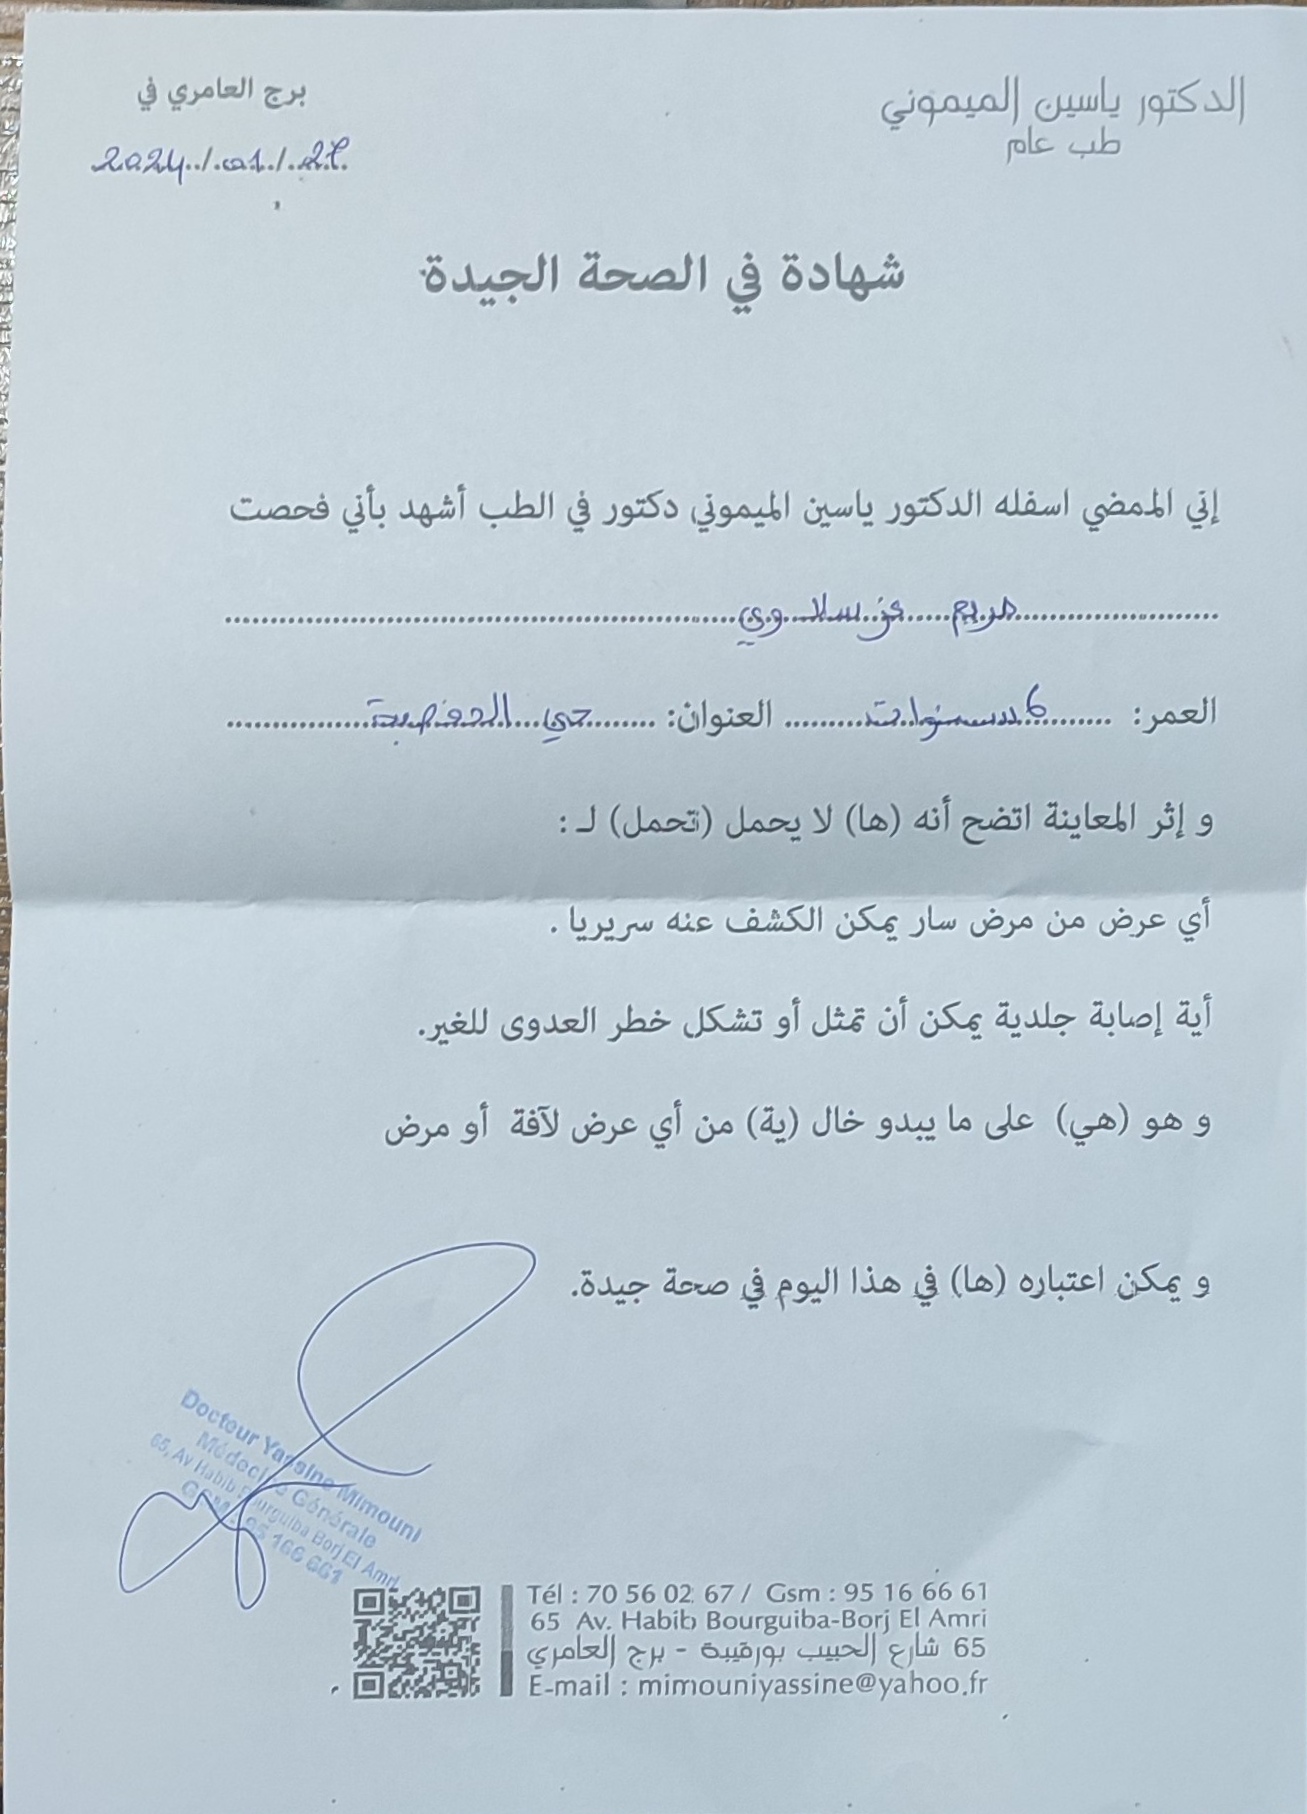 الدكتور ياسين الميموني
طب عام
برج العامري في
2024/01/
شهادة في الصحة الجيدة
إني الممضي اسفله الدكتور ياسين الميموني دكتور في الطب أشهد بأني فحصت
مريم
العمر: 6 سنوات العنوان: حي
و إثر المعاينة اتضح أنه (ها) لا يحمل (تحمل) لـ :
أي عرض من مرض سار يمكن الكشف عنه سريريا .
أية إصابة جلدية يمكن أن تمثل أو تشكل خطر العدوى للغير.
و هو (هي) على ما يبدو خال (ية) من أي عرض لآفة أو مرض
و يمكن اعتباره (ها) في هذا اليوم في صحة جيدة.
Docteur Yassine Mimouni
Médecine Générale
65, Av Habib Bourguiba Borj El Amri
GSM : 95 166 661
Tél : 70 56 02 67 / Gsm : 95 16 66 61
65 Av. Habib Bourguiba-Borj El Amri
65 شارع الحبيب بورقيبة - برج العامري
E-mail : mimouniyassine@yahoo.fr